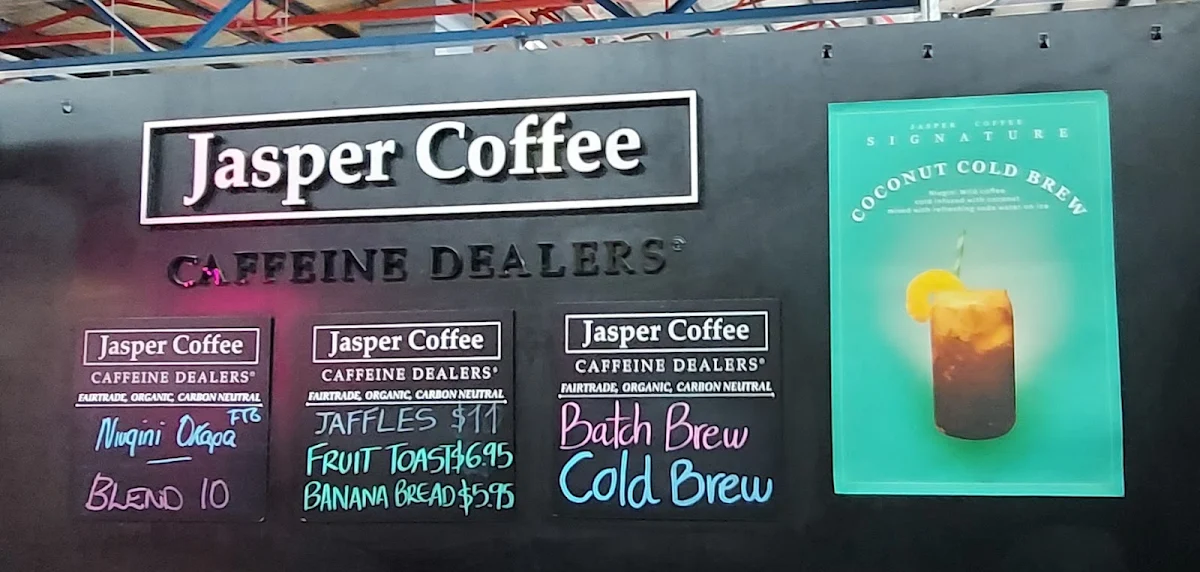 Jasper Coffee
CAFFEINE DEALERS®
Jasper Coffee
CAFFEINE DEALERS®
FAIRTRADE, ORGANIC, CARBON NEUTRAL
Niugini Okapa FTO
BLEND 10
Jasper Coffee
CAFFEINE DEALERS®
FAIRTRADE, ORGANIC, CARBON NEUTRAL
JAFFLES $11
FRUIT TOAST $6.95
BANANA BREAD $5.95
Jasper Coffee
CAFFEINE DEALERS®
FAIRTRADE, ORGANIC, CARBON NEUTRAL
Batch Brew
Cold Brew
JASPER COFFEE
SIGNATURE
COCONUT COLD BREW
Niugini Wild coffee
cold infused with coconut
mixed with refreshing soda water on ice